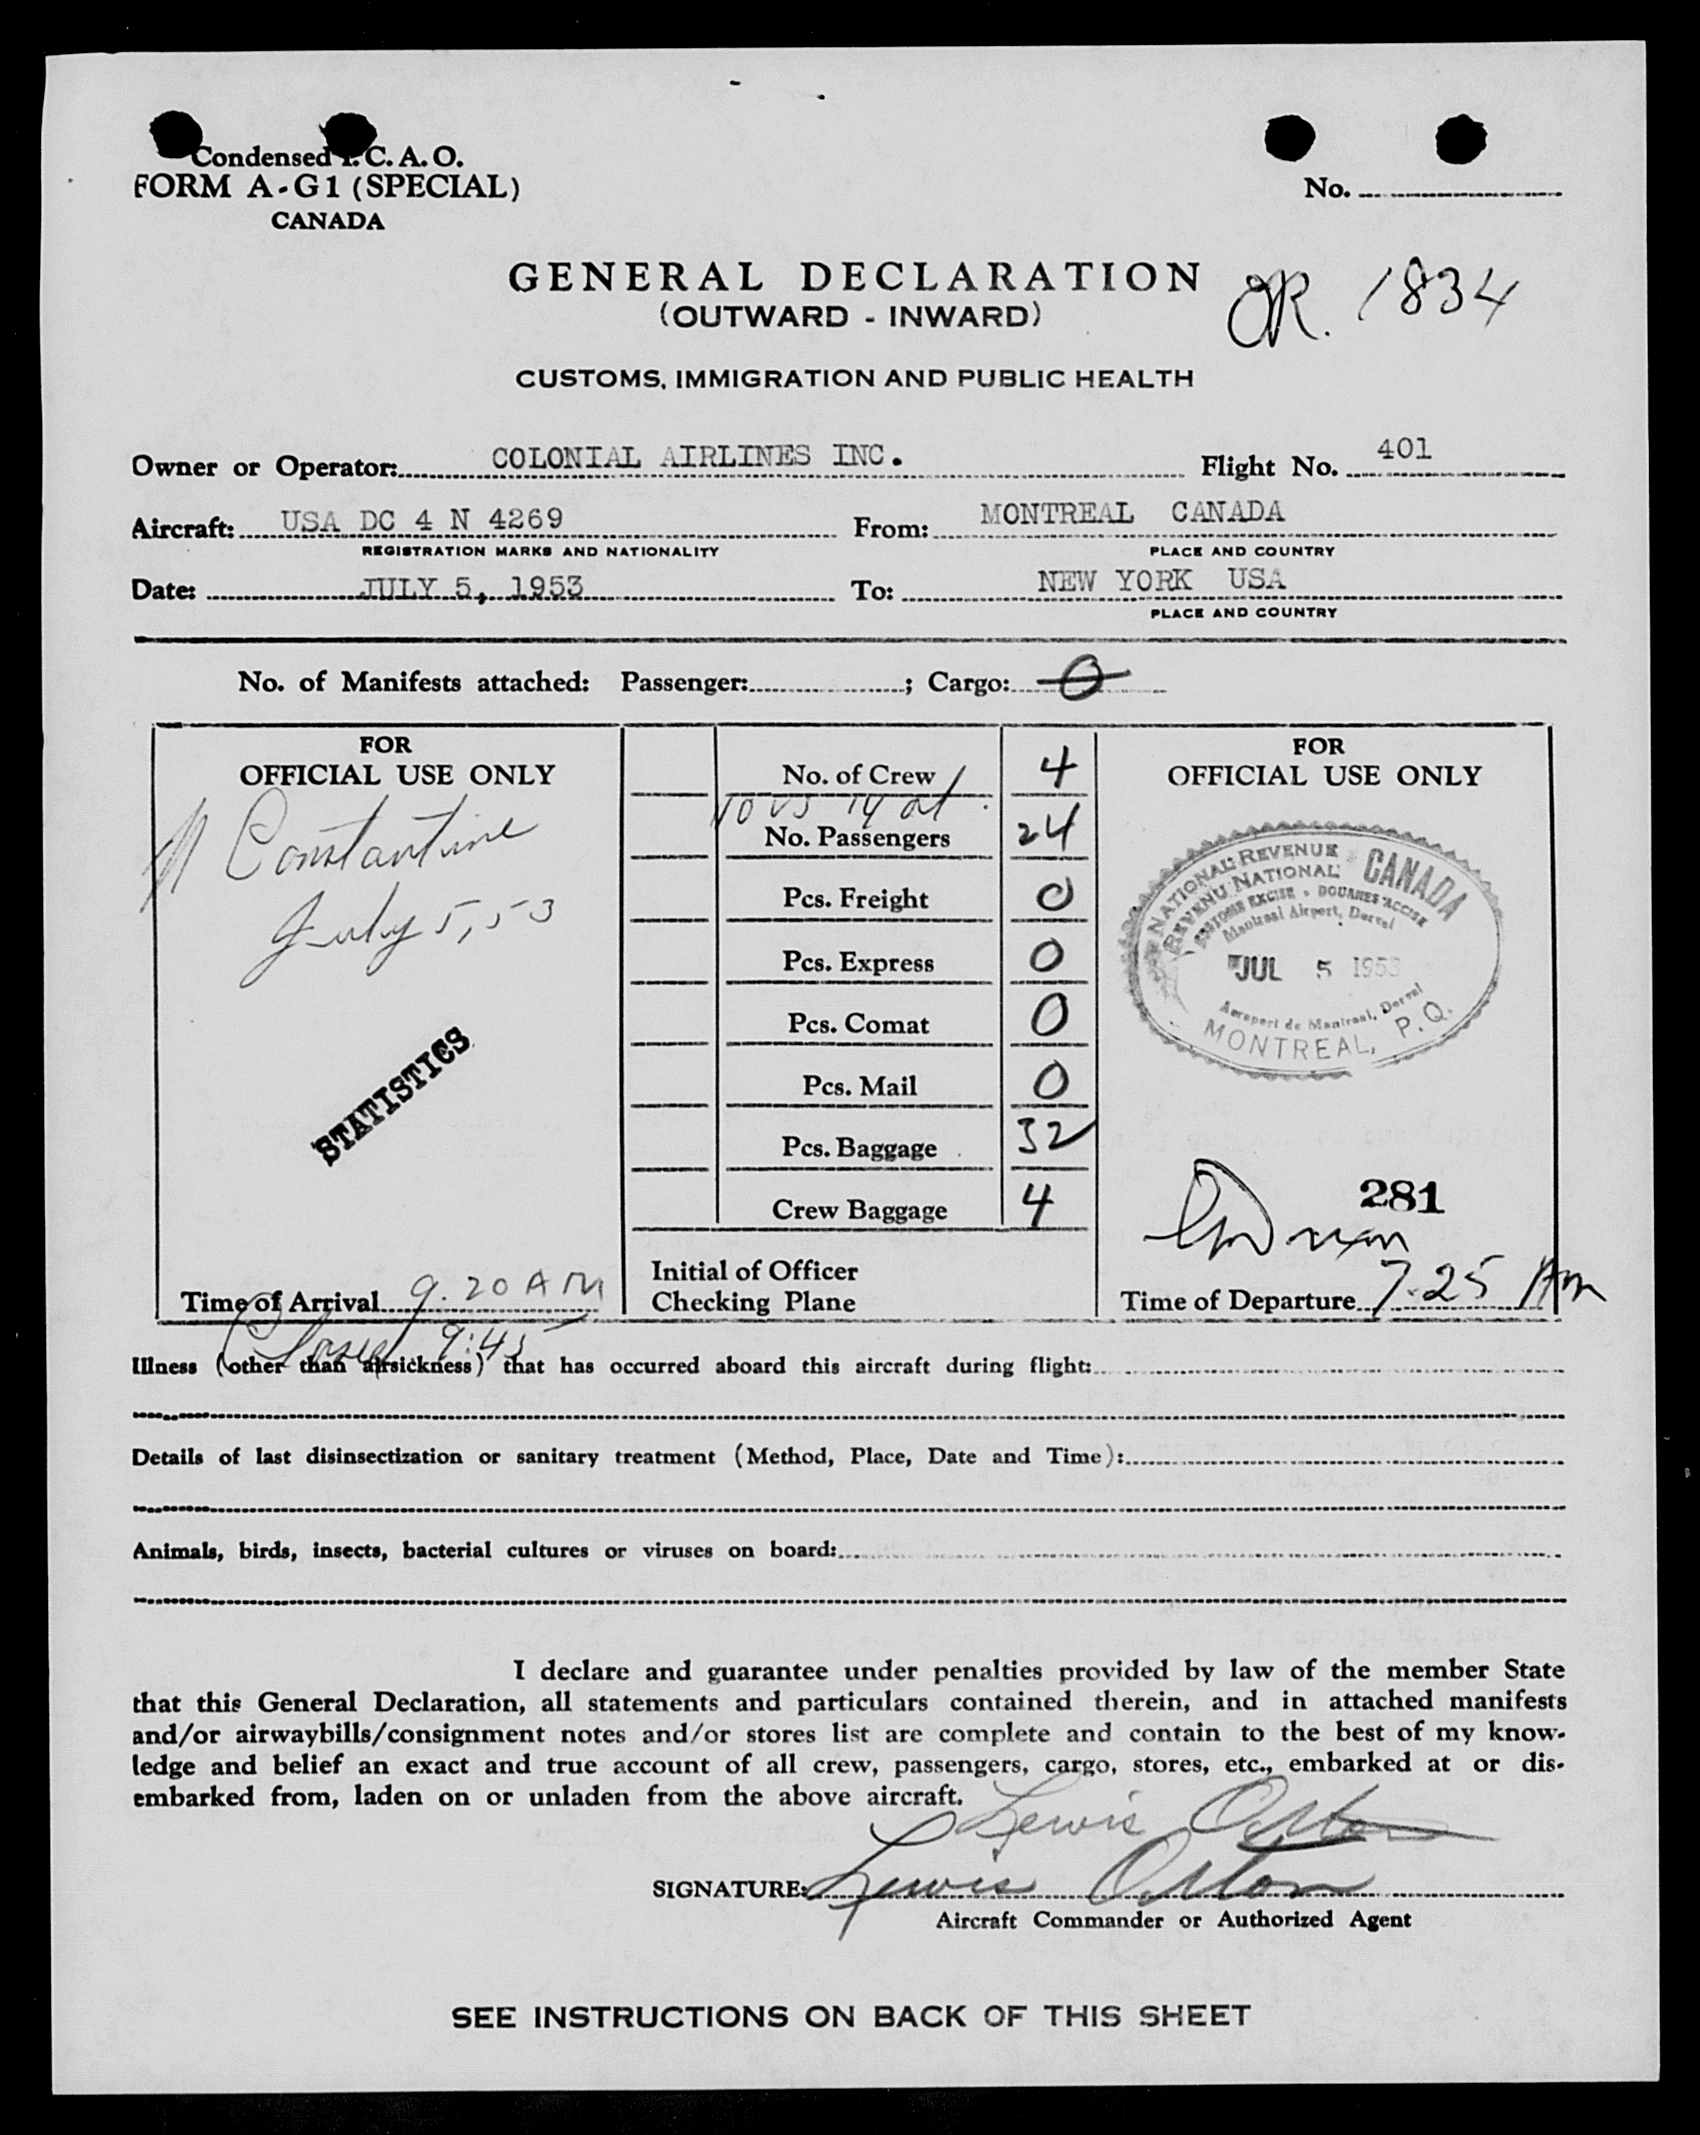 Condensed I. C. A. O.
FORM A-G1 (SPECIAL)
CANADA
No.
GENERAL DECLARATION
(OUTWARD - INWARD)
1834
CUSTOMS, IMMIGRATION AND PUBLIC HEALTH
Owner or Operator: COLONIAL AIRLINES INC. Flight No. 401
Aircraft: USA DC 4 N 4269 From: MONTREAL CANADA
REGISTRATION MARKS AND NATIONALITY PLACE AND COUNTRY
Date: JULY 5, 1953 To: NEW YORK USA
PLACE AND COUNTRY
No. of Manifests attached: Passenger: ; Cargo: 0
FOR
OFFICIAL USE ONLY
Constantine
July 5, 53
STATISTICS
Time of Arrival 9.20 AM
Closed 9:45
No. of Crew 4
10 US 14 al
No. Passengers 24
Pcs. Freight 0
Pcs. Express 0
Pcs. Comat 0
Pcs. Mail 0
Pcs. Baggage 32
Crew Baggage 4
Initial of Officer
Checking Plane
FOR
OFFICIAL USE ONLY
NATIONAL REVENUE CANADA
REVENU NATIONAL
CUSTOMS EXCISE • DOUANES ACCISE
Montreal Airport, Dorval
JUL 5 1953
Aeroport de Montreal, Dorval
MONTREAL, P.Q.
281
Time of Departure 7.25 AM
Illness (other than airsickness) that has occurred aboard this aircraft during flight:
Details of last disinsectization or sanitary treatment (Method, Place, Date and Time):
Animals, birds, insects, bacterial cultures or viruses on board:
I declare and guarantee under penalties provided by law of the member State
that this General Declaration, all statements and particulars contained therein, and in attached manifests
and/or airwaybills/consignment notes and/or stores list are complete and contain to the best of my know-
ledge and belief an exact and true account of all crew, passengers, cargo, stores, etc., embarked at or dis-
embarked from, laden on or unladen from the above aircraft.
Lewis Oston
SIGNATURE: Lewis Oston
Aircraft Commander or Authorized Agent
SEE INSTRUCTIONS ON BACK OF THIS SHEET